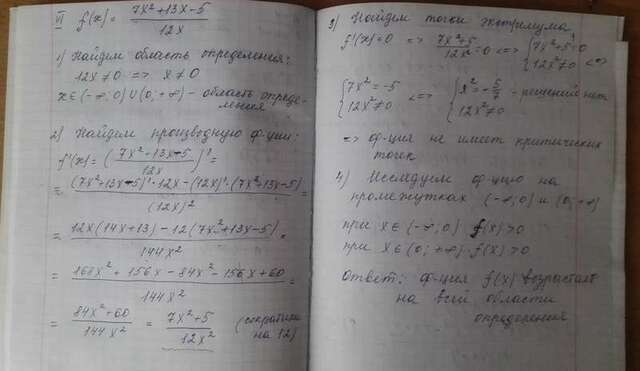 VI f(x) = (7x²+13x-5)/(12x)
1) Найдем область определения:
12x ≠ 0 => x ≠ 0
x ∈ (-∞; 0) ∪ (0; +∞) - область опреде-
ления
2) Найдем производную ф-ции:
f'(x) = ((7x²-13x-5)/(12x))' =
= ((7x²+13x-5)'·12x-(12x)'·(7x²+13x-5))/((12x)²) =
= (12x(14x+13)-12(7x²+13x-5))/(144x²) =
= (168x²+156x-84x²-156x+60)/(144x²) =
= (84x²+60)/(144x²) = (7x²+5)/(12x²) (сократили
на 12)
3) Найдем точки экстремума
f'(x)=0 => (7x²+5)/(12x²)=0 <=> {7x²+5=0
{12x²≠0 <=>
{7x²=-5 <=> {x²=-5/7 - решений нет
{12x²≠0 {12x²≠0
=> ф-ция не имеет критических
точек
4) Исследуем ф-цию на
промежутках (-∞; 0) и (0; +∞)
при x ∈ (-∞; 0) f(x)>0
при x ∈ (0; +∞) f(x)>0
Ответ: ф-ция f(x) возрастает
на всей области
определения